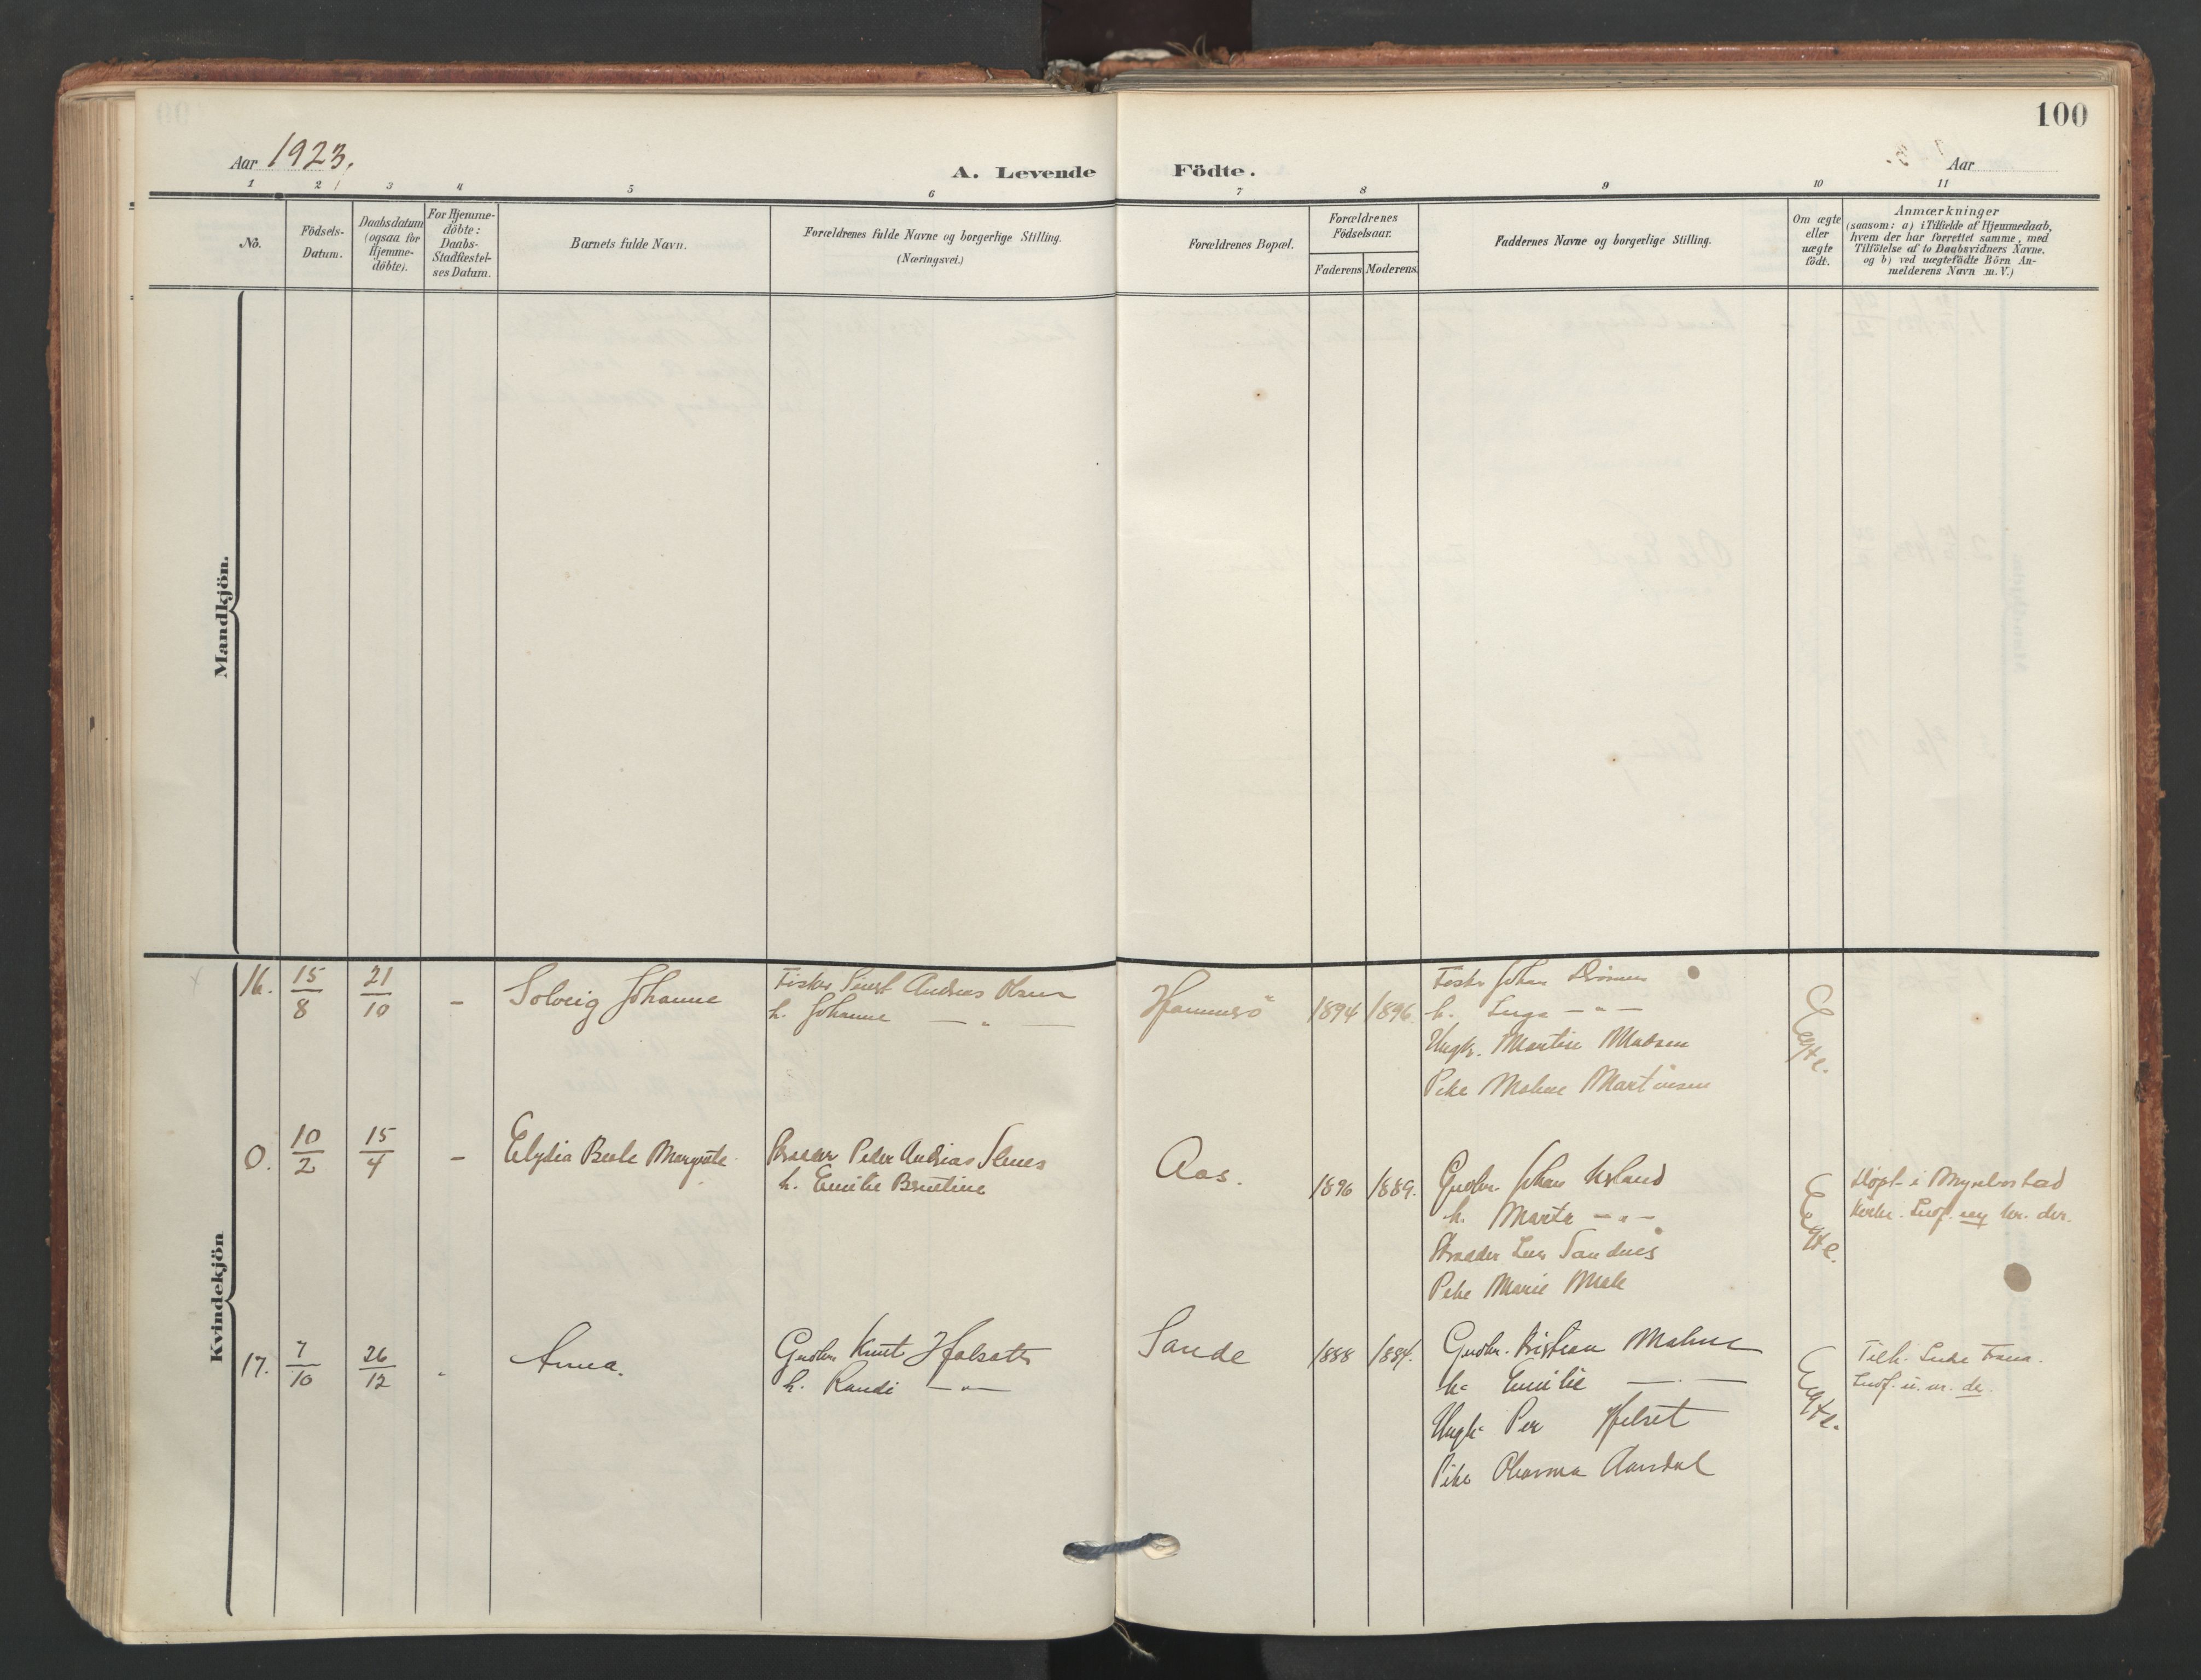 100
Aar 1923.
A. Levende Födte.
Aar
1 2 3 4 5 6 7 8 9 10 11
No.
Födsels-
Datum.
Daabsdatum
(ogsaa for
Hjemme-
döbte).
For Hjemme-
döbte:
Daabs-
Stadfæstel-
ses Datum.
Barnets fulde Navn.
Forældrenes fulde Navne og borgerlige Stilling.
(Næringsvei.)
Forældrenes Bopæl.
Forældrenes
Födselsaar.
Faderens Moderens.
Faddernes Navne og borgerlige Stilling.
Om ægte
eller
uægte
födt.
Anmærkninger
(saasom: a) i Tilfælde af Hjemmedaab,
hvem der har forrettet samme, med
Tilföielse af to Daabsvidners Navne.
og b) ved uægtefödte Börn An-
melderens Navn m. V.)
Mandkjön.
Kvindekjön
16. 15/8 21/10 - Solveig Johanne
Fisker Andreas Olsen
h. Johanne — " —
1894 1896.
Fisker Johan
h. Inga - " -
Ungk. Martin Madsen
Pike Malene Martinsen
Egte.
0. 10/2 15/4 - Elydia Beate Margrete
Peder Andreas
h. Emilie Berntine
Aas. 1896 1889.
Gaardbr. Johan
h. Marta - " -
Sandnes
Pike Marie
Egte.
Døpt i Myrebostad
kirke.
17. 7/10 26/12 " Anna.
Gaardbr. Knut
h. Randi — " —
Sande 1888 1884.
Gaardbr. Kristian Malme
h. Emilie — " —
Ungk. Per
Pike Aandal
Egte.
Tilh. Indre Fræna.